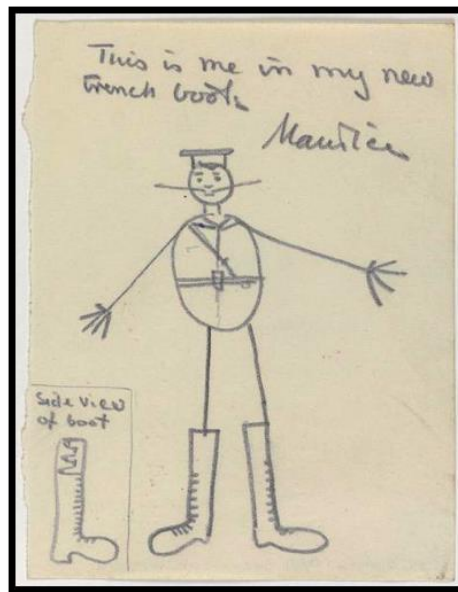 This is me in my new
trench boots
Maurice
Side view
of boot